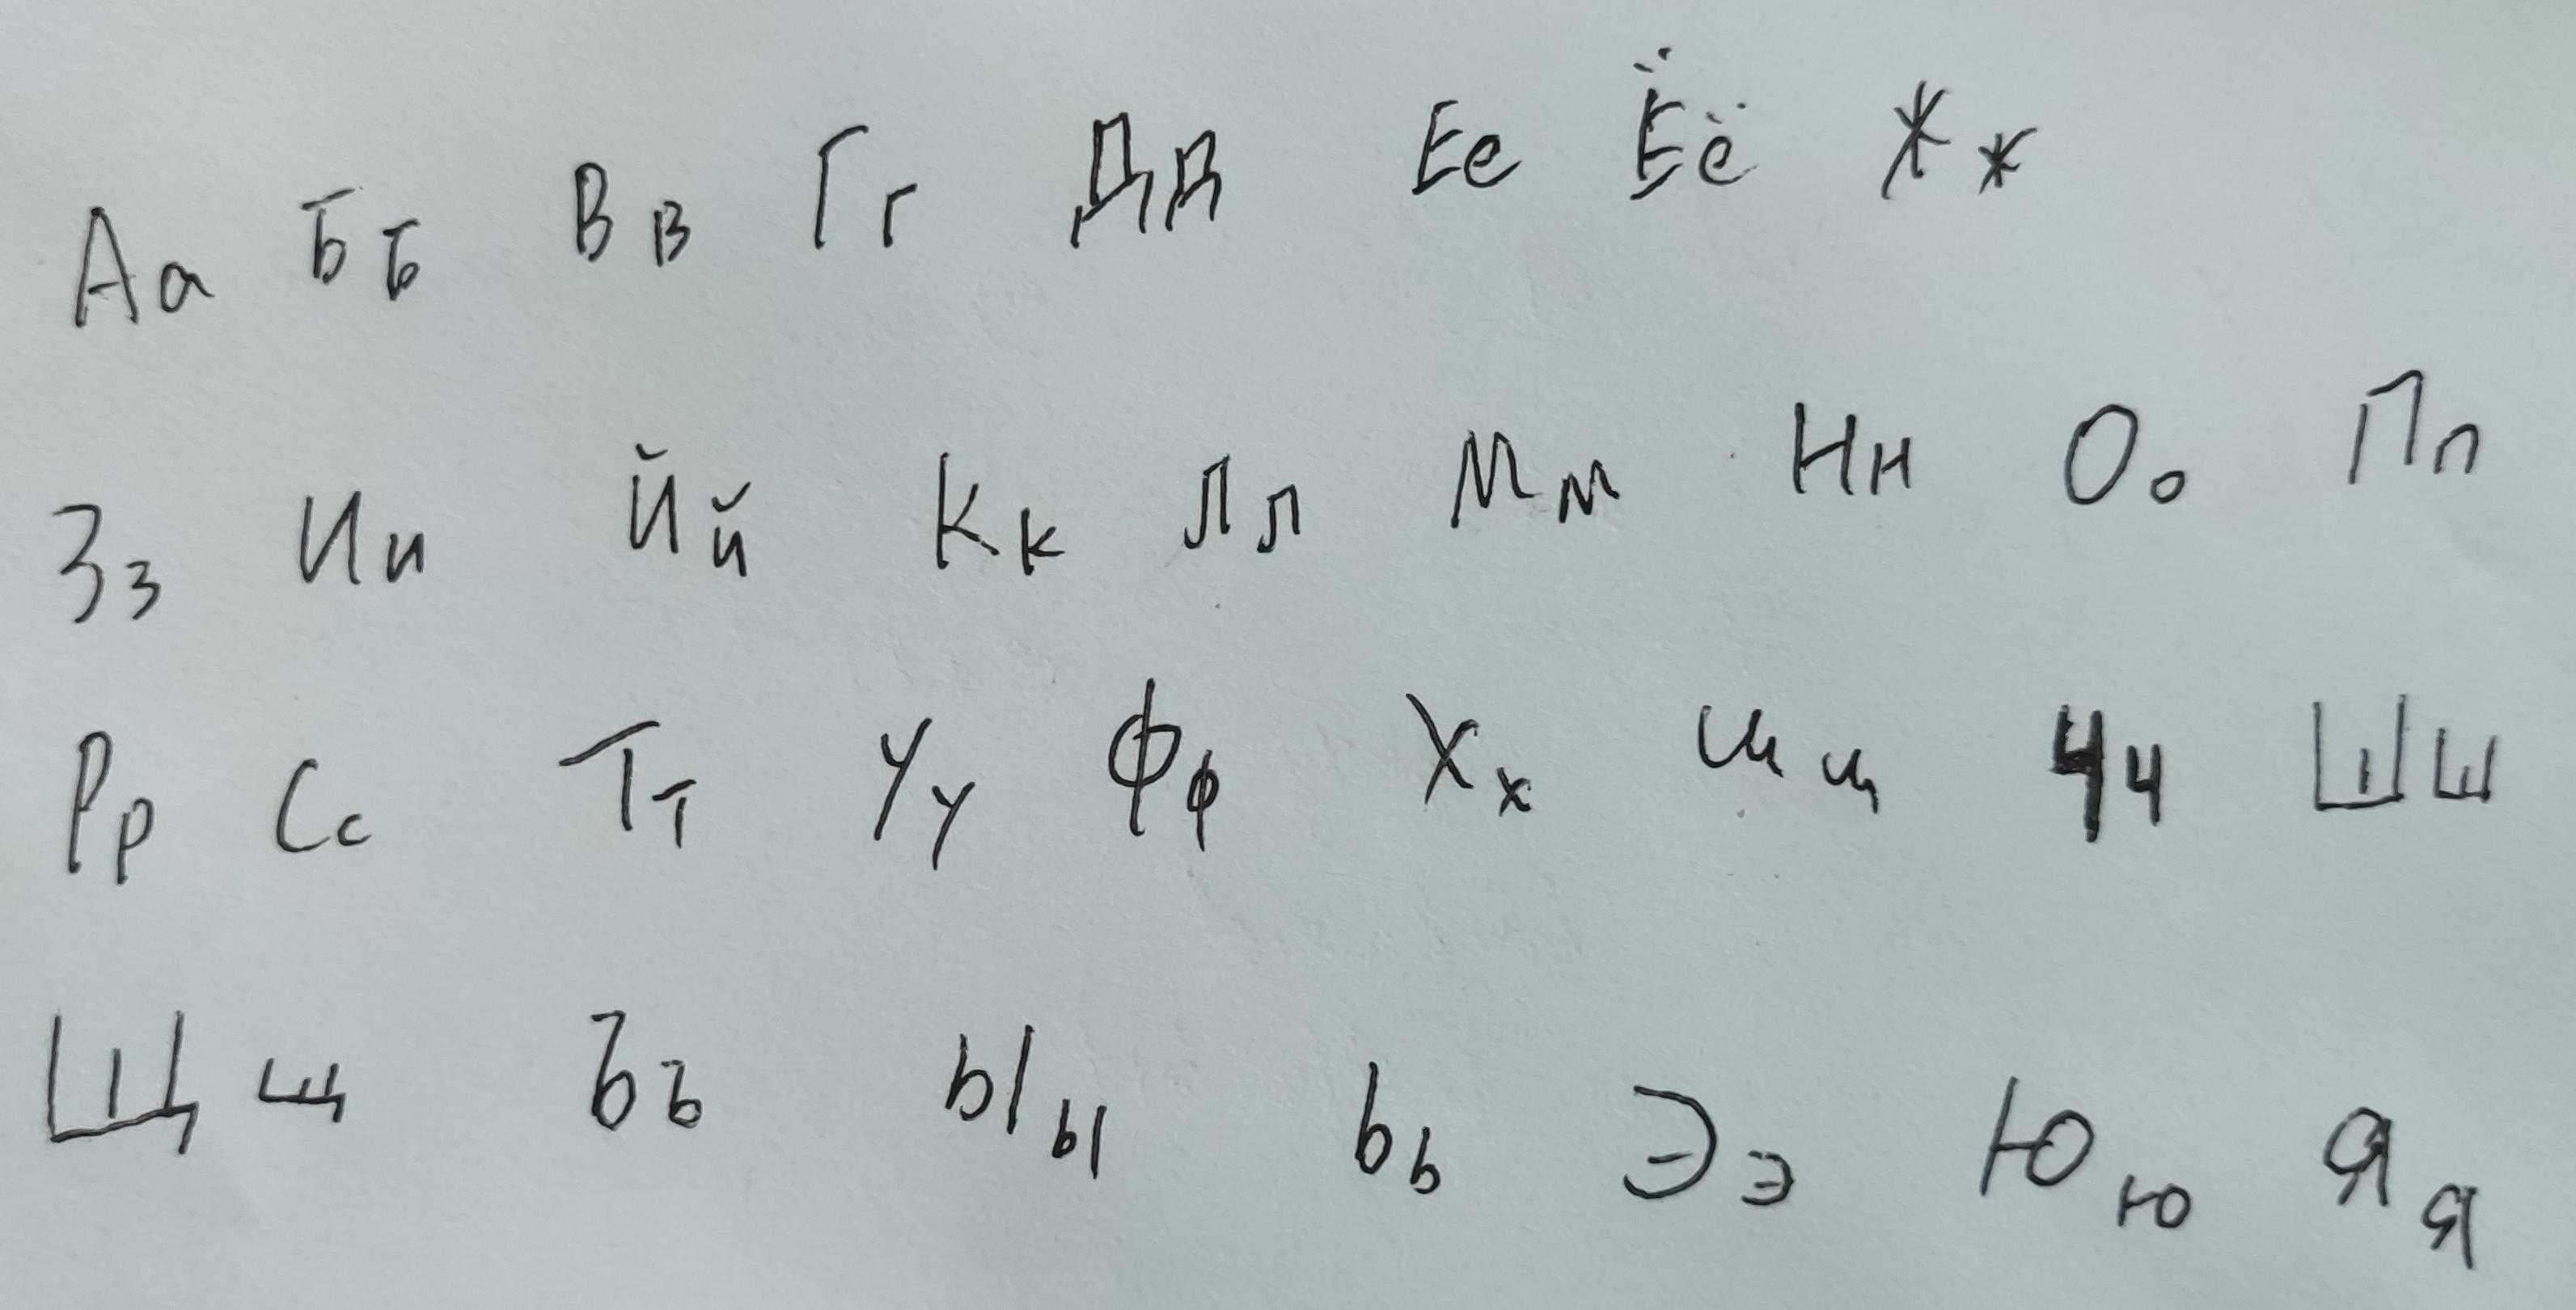 Аа Бб Вв Гг Дд Ее Ёё Жж
Зз Ии Йй Кк Лл Мм Нн Оо Пп
Рр Сс Тт Уу Фф Хх Цц Чч Шш
Щщ Ъъ Ыы Ьь Ээ Юю Яя